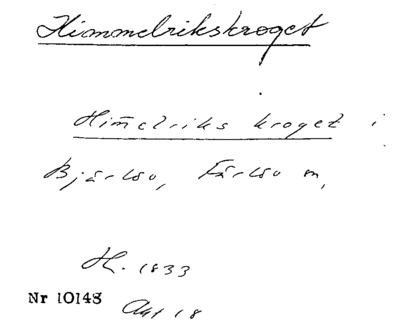 Himmelrikskroget
Him̄elriks kroget i
Bjärlöv, Färlöv m,
H. 1833
Nr 10148
Akt 18